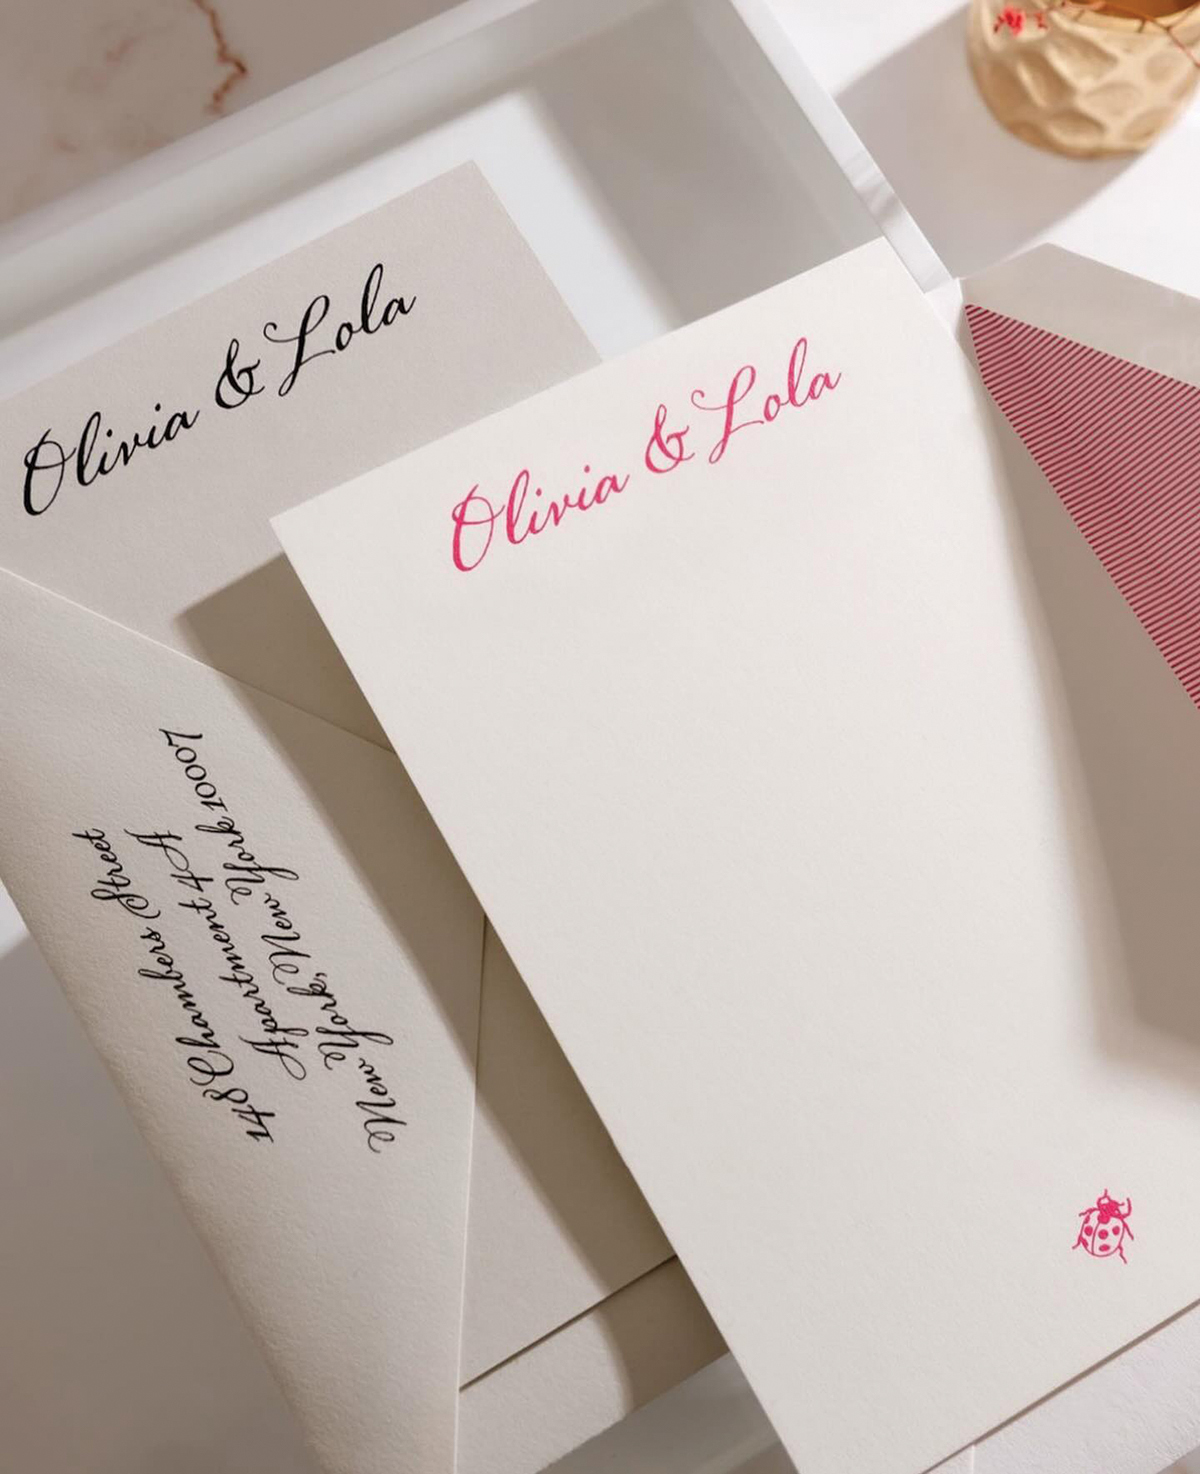 Olivia & Lola
Olivia & Lola
148 Chambers Street
Apartment 4A
New York, New York 10007